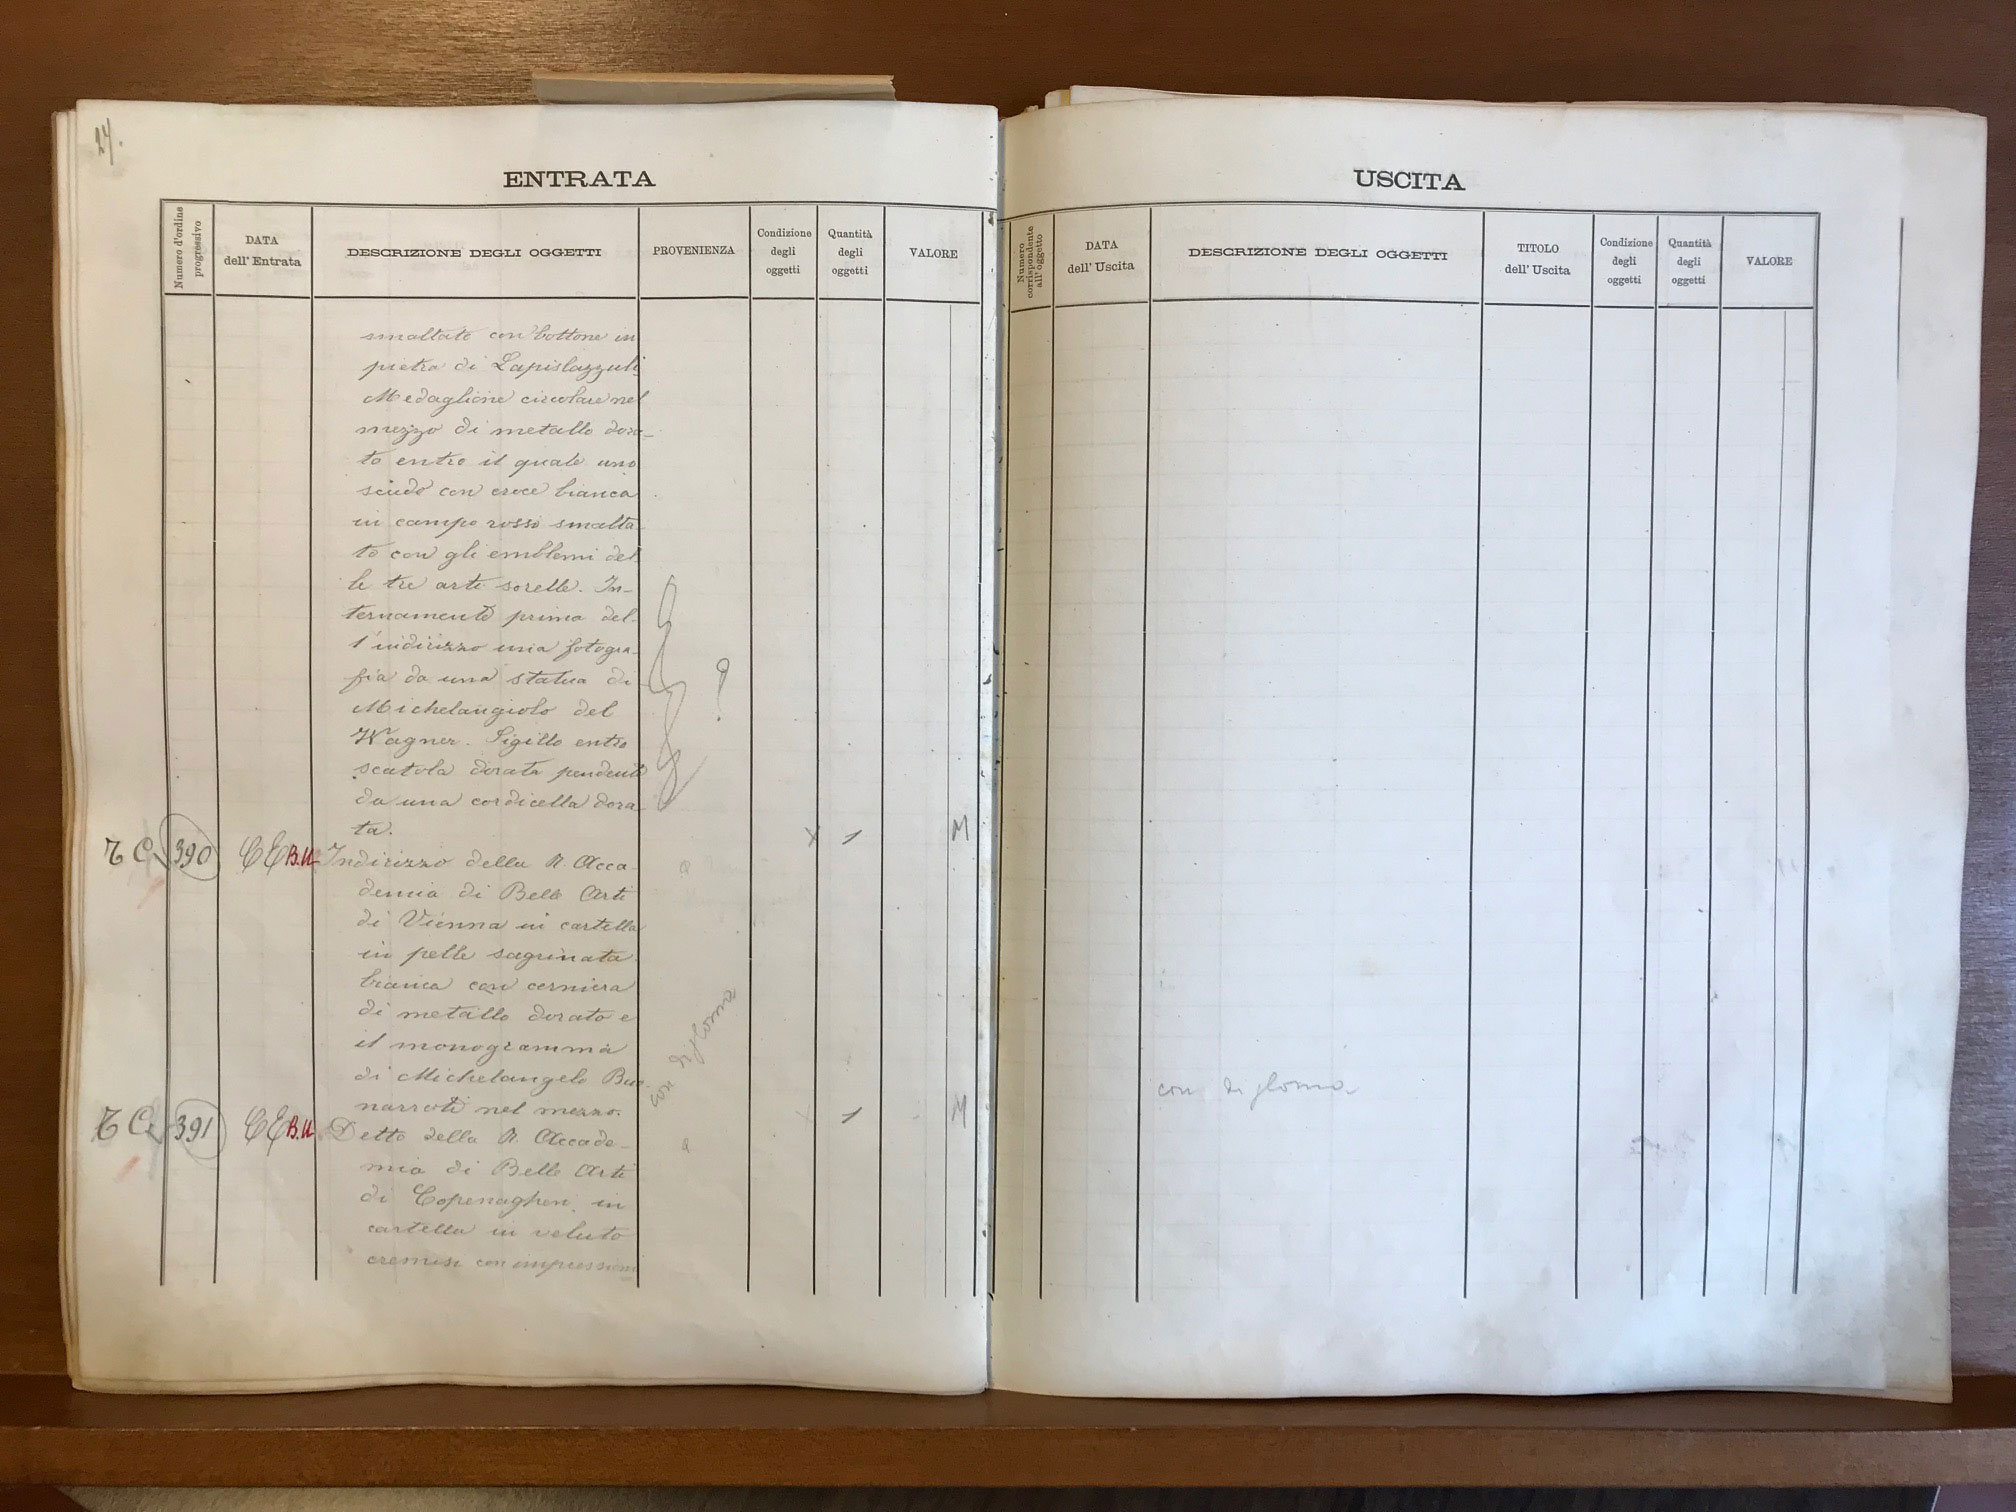 27.
ENTRATA
Numero d'ordine progressivo
DATA dell' Entrata
DESCRIZIONE DEGLI OGGETTI
PROVENIENZA
Condizione degli oggetti
Quantità degli oggetti
VALORE
smaltate con bottone in
pietra di Lapislazzuli
Medaglione circolare nel
mezzo di metallo dora-
to entro il quale uno
scudo con croce bianca
in campo rosso smalta-
to con gli emblemi del
le tre arti sorelle. In-
ternamente prima del-
l'indirizzo una fotogra-
fia da una statua di
Michelangiolo del
Wagner. Sigillo entro
scatola dorata pendente
da una cordicella dora-
ta.
?
T C 390 CE B.U. Indirizzo della R. Acca- X 1 M
demia di Belle Arti
di Vienna in cartella
in pelle sagrinata
bianca con cerniera
di metallo dorato e
il monogramma
di Michelangelo Buo-
narroti nel mezzo.
con diploma
T C 391 CE B.U. Detto della R. Accade- X 1 M
mia di Belle Arti
di Copenaghen in
cartella in veluto
cremisi con impressioni
USCITA
Numero corrispondente all' oggetto
DATA dell' Uscita
DESCRIZIONE DEGLI OGGETTI
TITOLO dell' Uscita
Condizione degli oggetti
Quantità degli oggetti
VALORE
con diploma